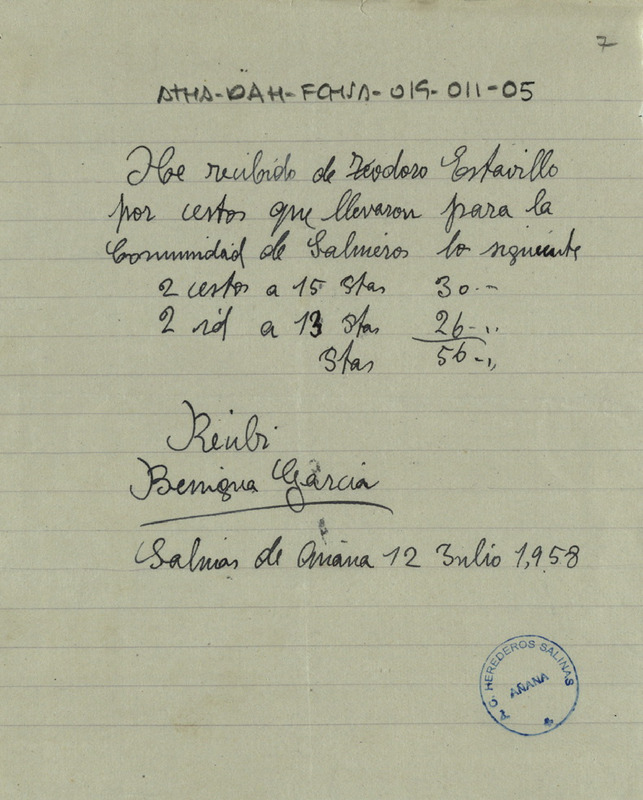 7
ATHA-DAH-FCHSA-019-011-05
He recibido de Teodoro Estavillo
por cestos que llevaron para la
Comunidad de Salineros lo siguiente
2 cestos a 15 Ptas 30.-
2 id a 13 Ptas 26-..
Ptas 56-..
Recibi
Benigna Garcia
Salinas de Añana 12 Julio 1,958
A. C. HEREDEROS SALINAS
AÑANA